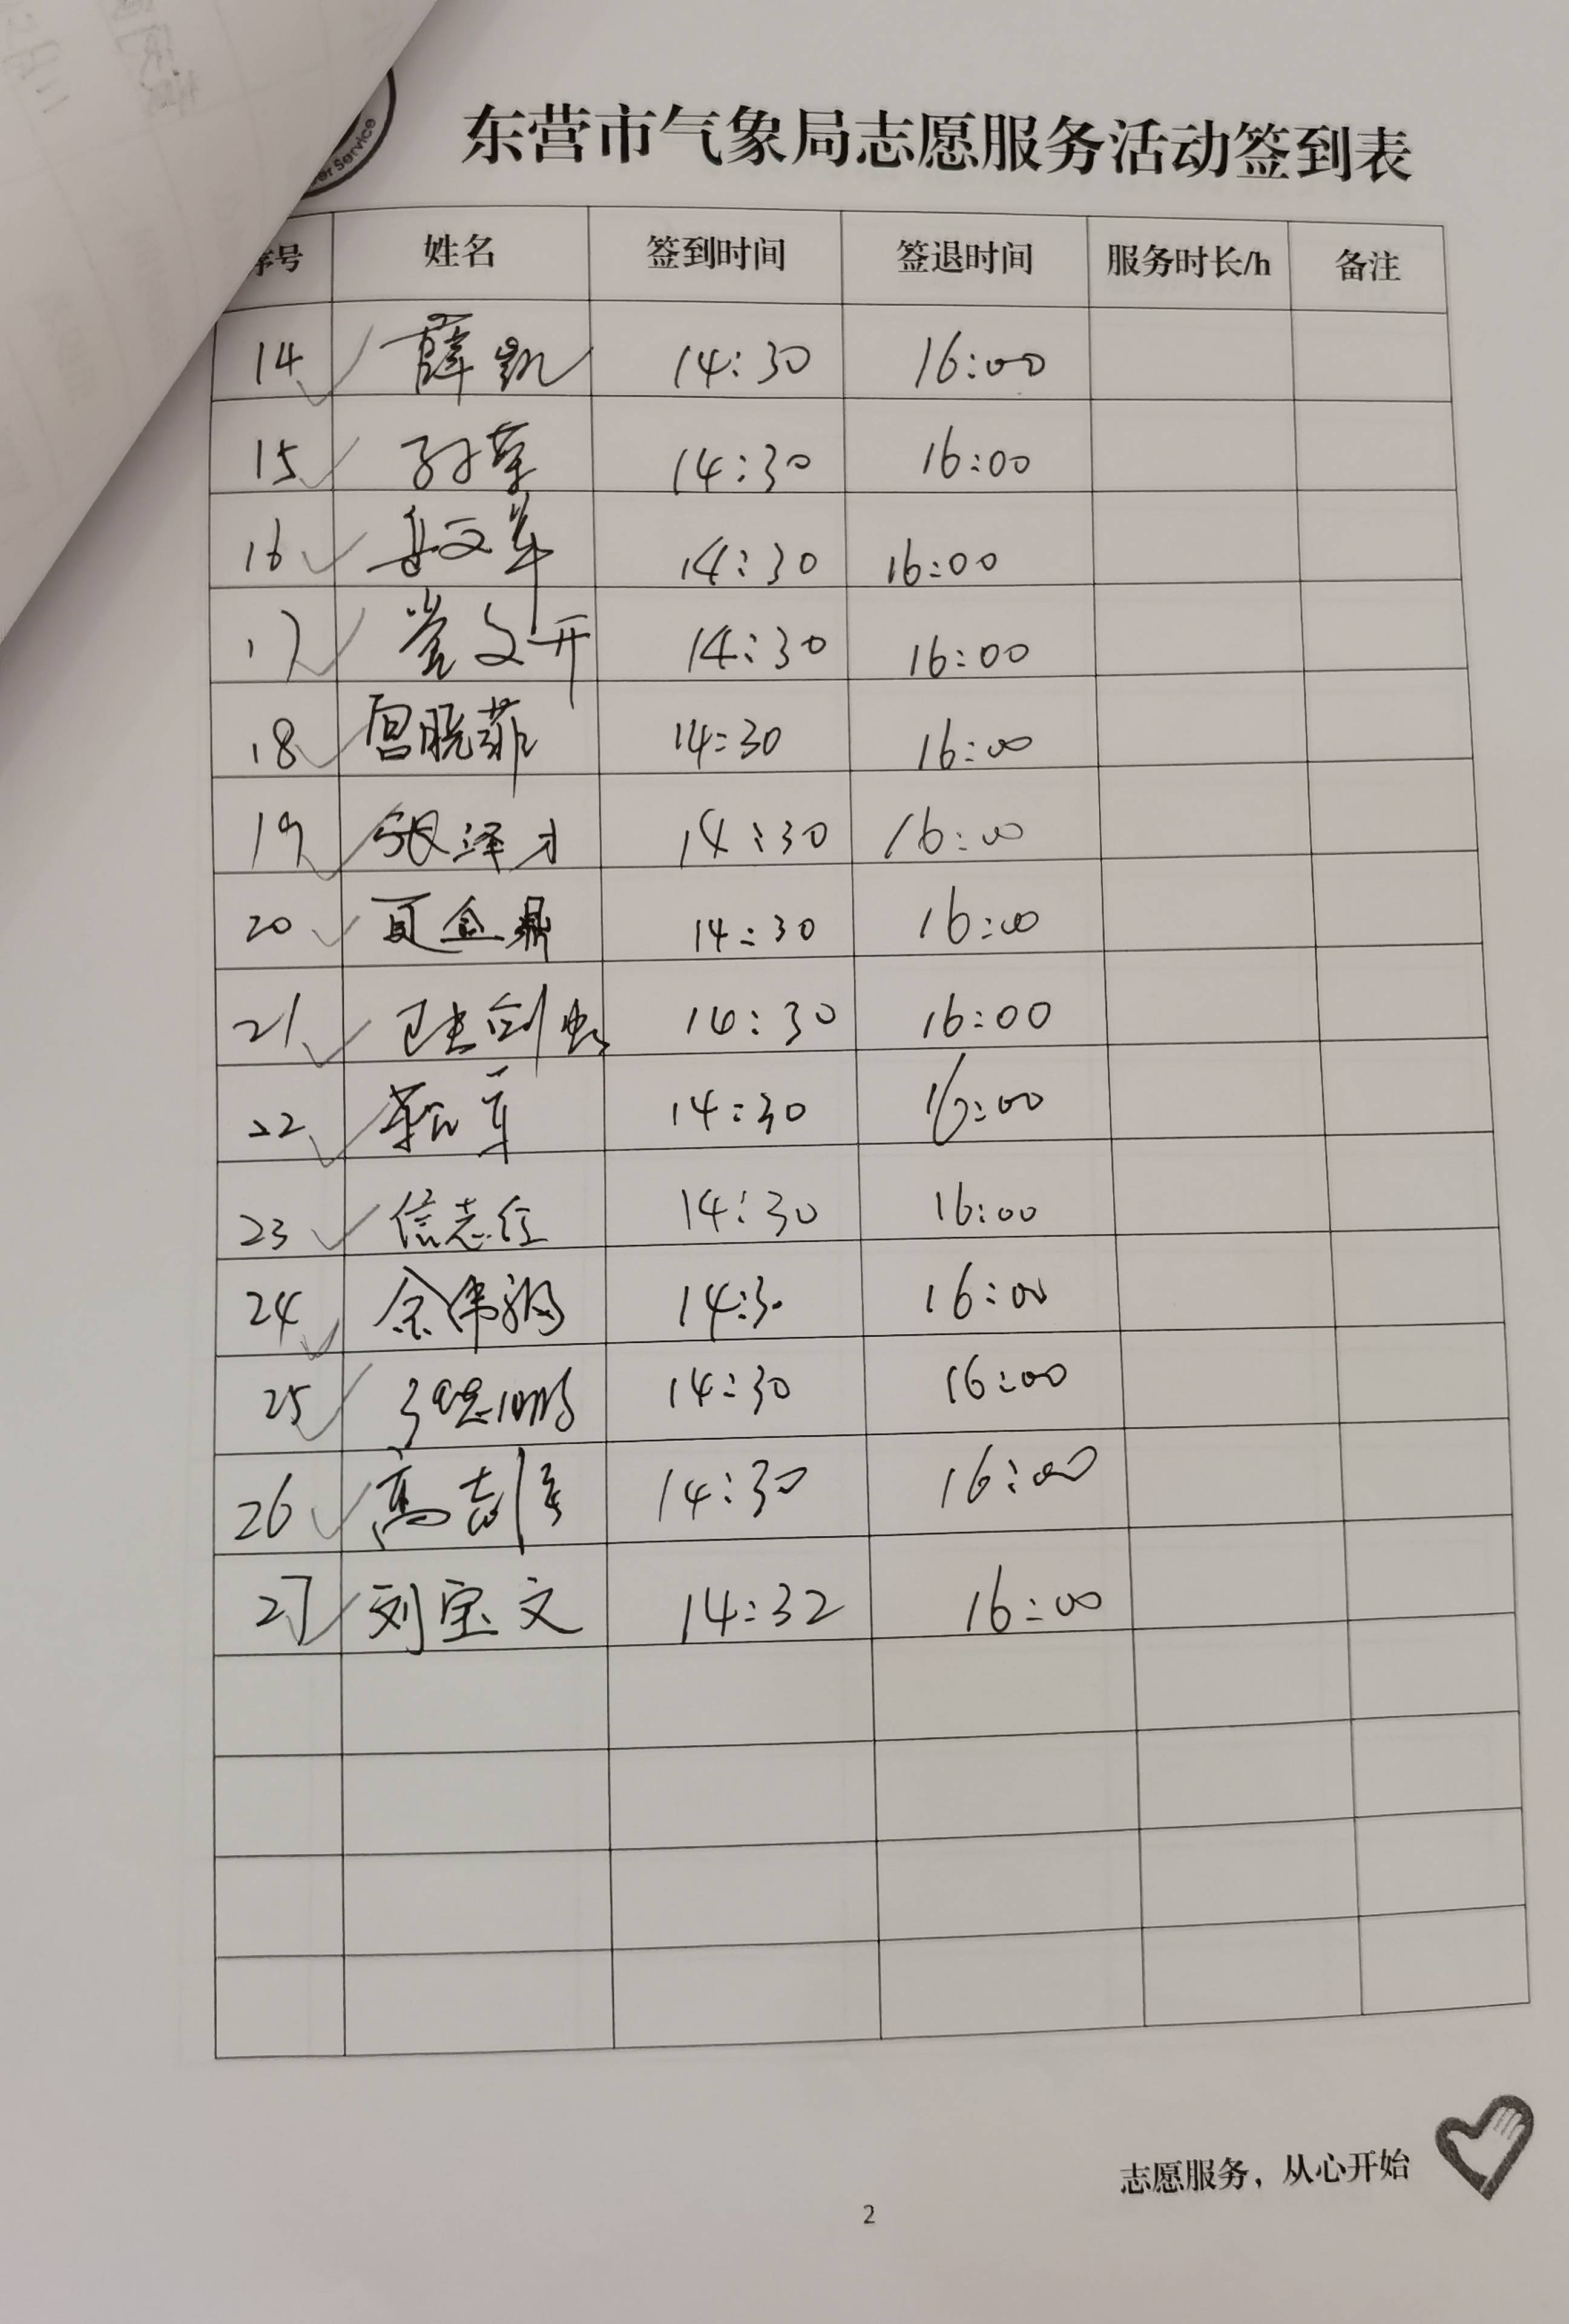 er Service
东营市气象局志愿服务活动签到表
序号 姓名 签到时间 签退时间 服务时长/h 备注
14 薛凯 14:30 16:00
15 14:30 16:00
16 14:30 16:00
17 14:30 16:00
18 宫晓菲 14:30 16:00
19 张泽才 14:30 16:00
20 夏金鼎 14:30 16:00
21 14:30 16:00
22 14:30 16:00
23 信志红 14:30 16:00
24 14:30 16:00
25 14:30 16:00
26 14:30 16:00
27 刘宝文 14:32 16:00
志愿服务，从心开始
2